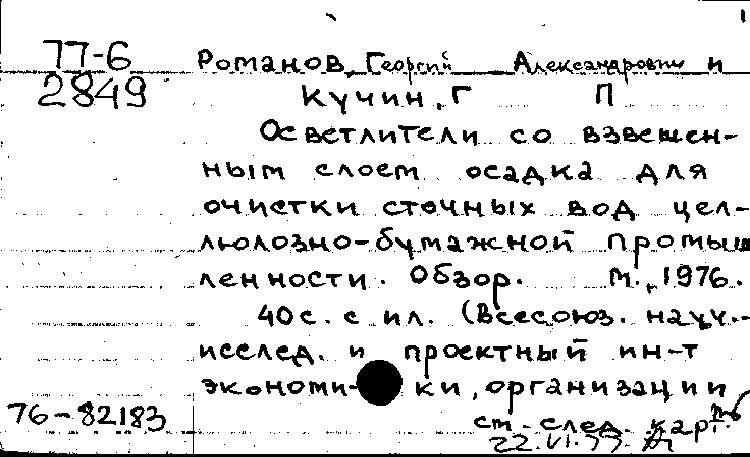 77-6
2849
Романов, Георгий Александрович и
Кучин, Г П
Осветлители со взвешен-
ным слоем осадка для
очистки сточных вод цел-
люлозно-бумажной промыш
ленности. Обзор. М., 1976.
40 с. с ил. (Всесоюз. науч.-
исслед. и проектный ин-т
экономи- ки, организации
76-82183
см. след. карт.
22.VI.77.